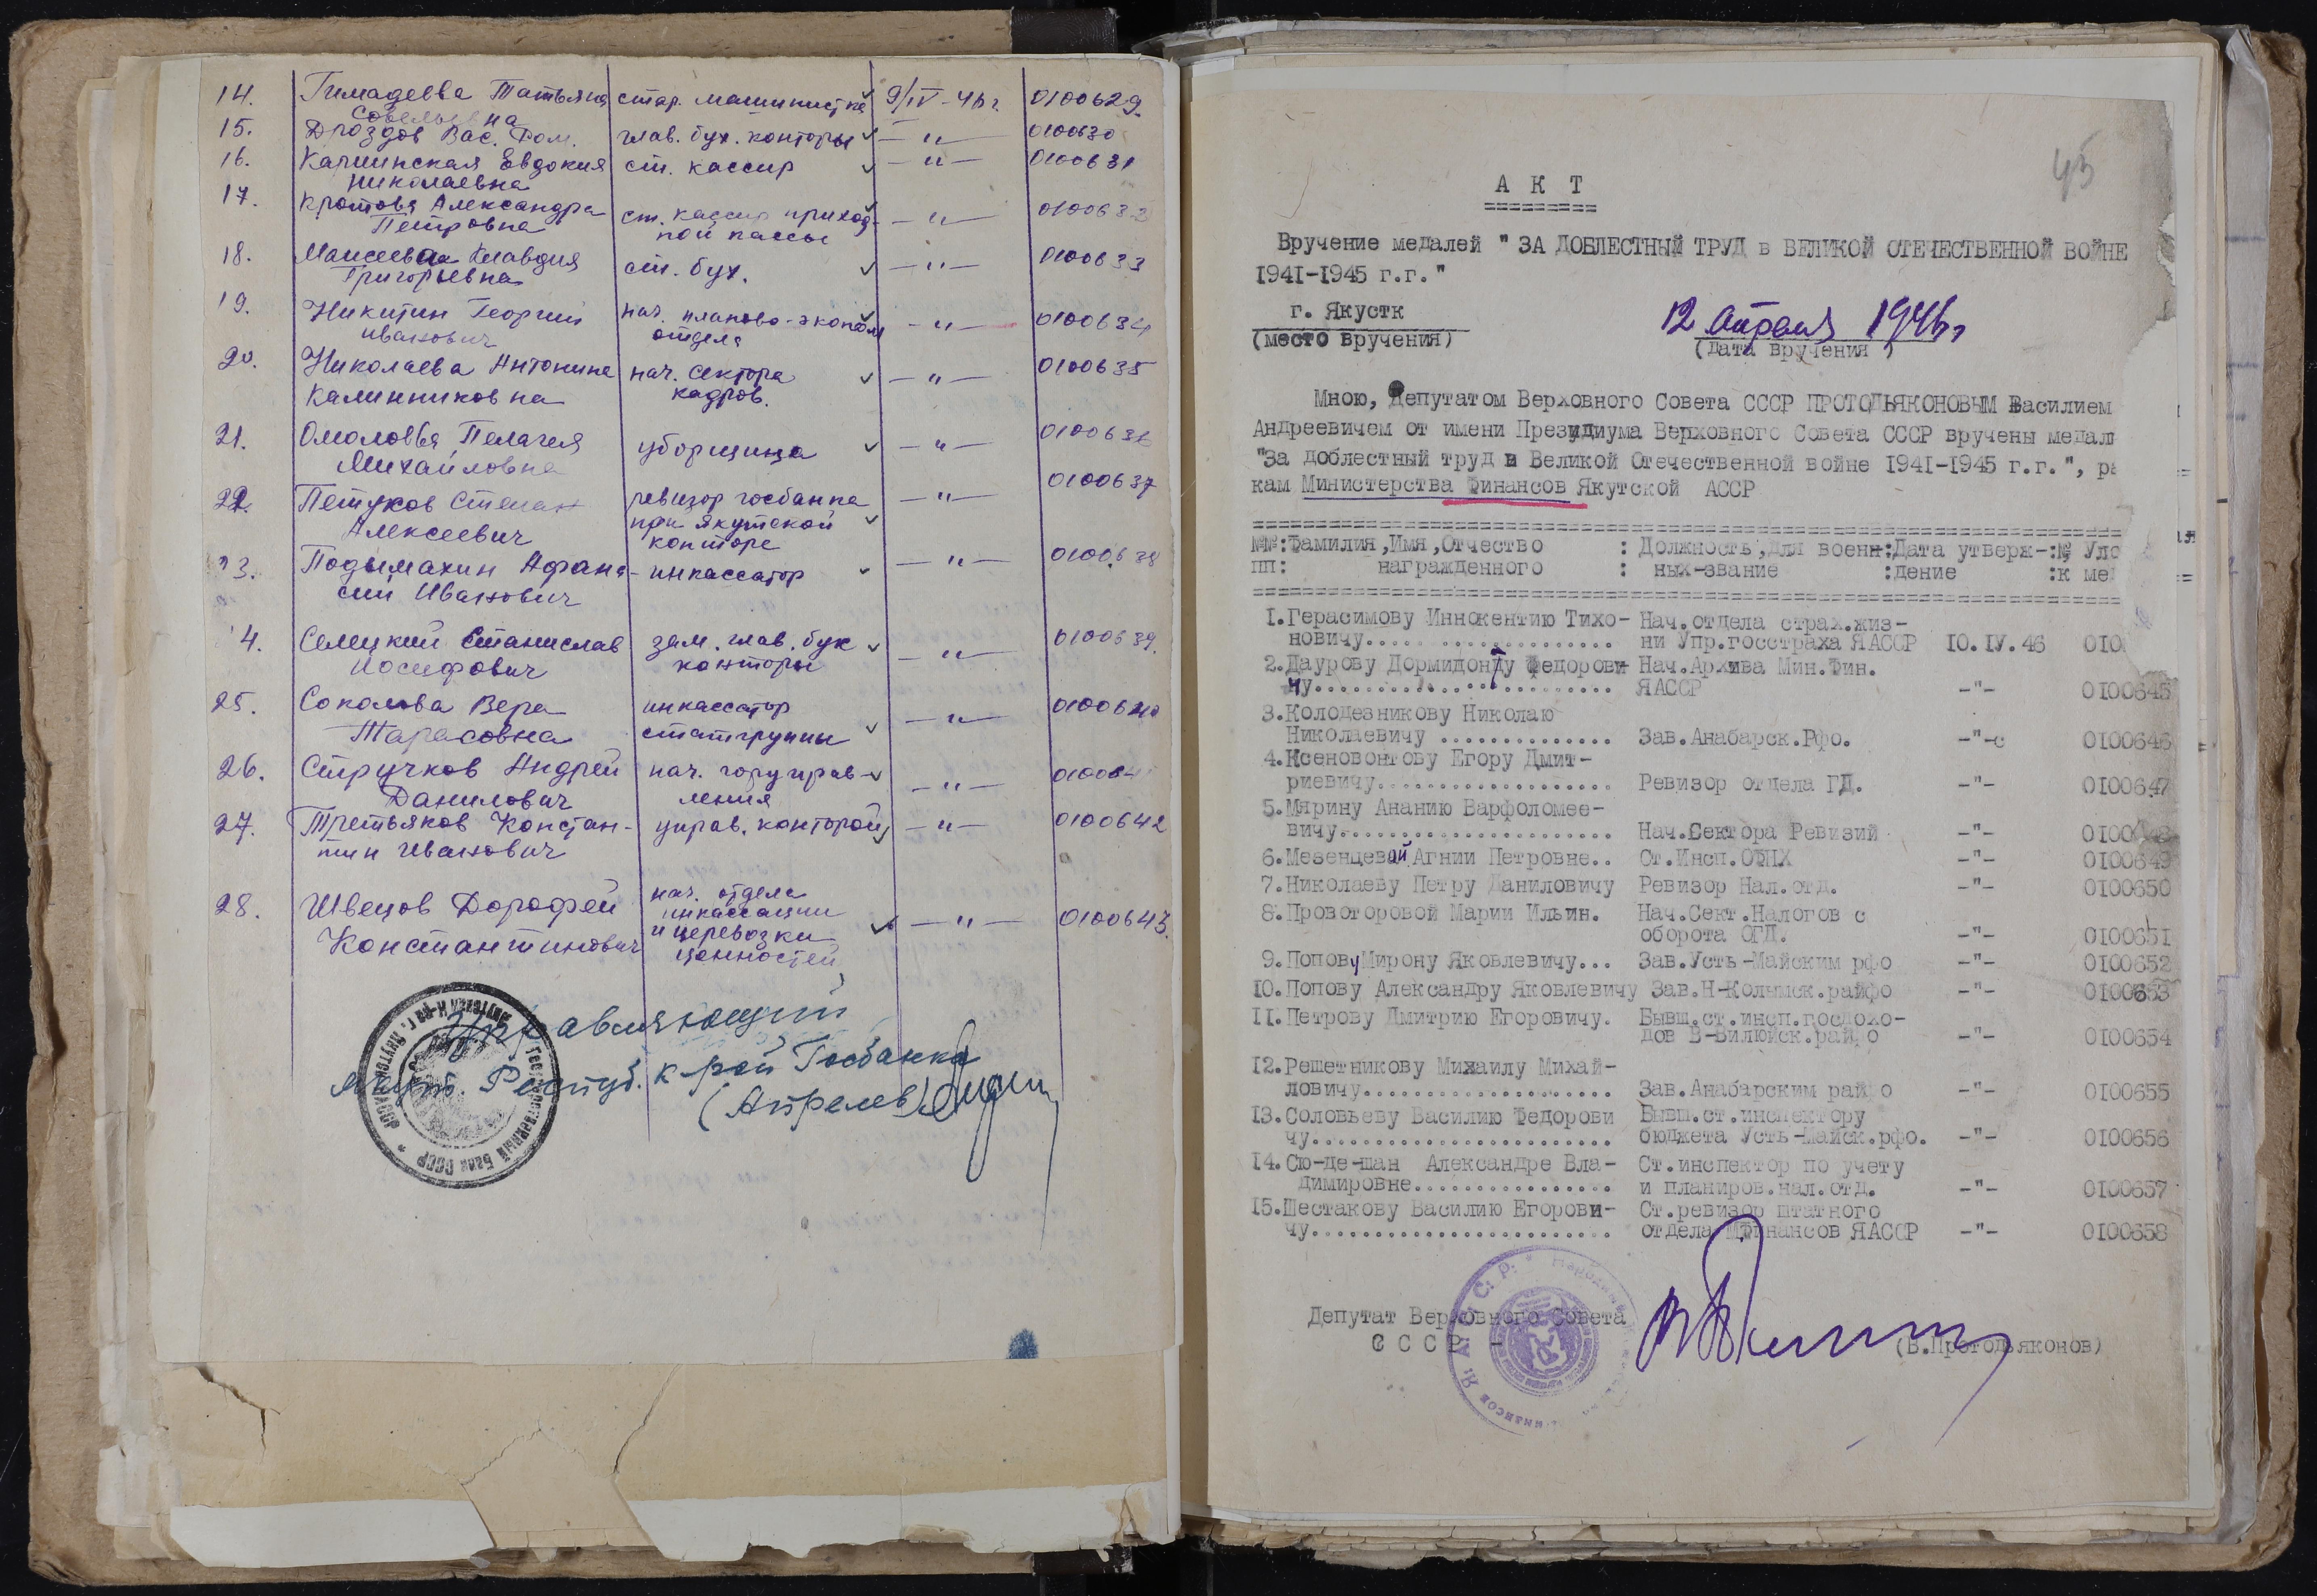 14. Гимадеева Татьяна стар. машинистка 9/IV-46 г. 0100629
Савельевна
15. Дроздов Вас. Фом. глав. бух. конторы —"— 0100630
16. Каршинская Евдокия ст. кассир —"— 0100631
Николаевна
17. Кротова Александра ст. кассир приход- —"— 0100632
Петровна ной кассы
18. Маисеева Клавдия ст. бух. —"— 0100633
Григорьевна
19. Никитин Георгий нач. планово-эконом —"— 0100634
Иванович отдела
20. Николаева Антонина нач. сектора —"— 0100635
Калинниковна кадров.
21. Омоловва Пелагея уборщица —"— 0100636
Михайловна
22. Петуков Степан ревизор госбанка —"— 0100637
Алексеевич при Якутской
конторе
23. Подымахин Афана- инкассатор —"— 0100638
сий Иванович
4. Селецкий Станислав зам. глав. бух —"— 0100639.
Иосифович конторы
25. Соколова Вера инкассатор —"— 0100640
Тарасовна статгруппы
26. Стручков Андрей нач. горуправ- —"— 010064
Данилович ления
27. Третьяков Констан- управ. конторой —"— 0100642
тин Иванович
28. Швецов Дорофей нач. отдела
инкассации
Константинович и перевозки —"— 0100643.
ценностей
Управляющий
Якут. Респуб. к-рой Госбанка
(Апрелев)
Государственный Банк СССР
45
А К Т
=========
Вручение медалей "ЗА ДОБЛЕСТНЫЙ ТРУД в ВЕЛИКОЙ ОТЕЧЕСТВЕННОЙ ВОЙНЕ
1941-1945 г.г."
г. Якустк 12 апреля 1946 г.
(место вручения) (дата вручения)
Мною, Депутатом Верховного Совета СССР ПРОТОДЬЯКОНОВЫМ Василием
Андреевичем от имени Президиума Верховного Совета СССР вручены медал
"За доблестный труд в Великой Отечественной войне 1941-1945 г.г.", ра
кам Министерства Финансов Якутской АССР
№№:Фамилия,Имя,Отчество : Должность,для военн:Дата утверж-:№ Удо
пп: награжденного : ных-звание :дение :к ме
1.Герасимову Иннокентию Тихо- Нач.отдела страх.жиз-
новичу..................... ни Упр.госстраха ЯАССР 10.IV.46 010
2.Даурову Дормидонту Федорови- Нач.Архива Мин.Фин.
чу......................... ЯАССР -"- 0100645
3.Колодезникову Николаю
Николаевичу .............. Зав.Анабарск.Рфо. -"-с 0100646
4.Ксеновонтову Егору Дмит-
риевичу.................... Ревизор отдела ГД. -"- 0100647
5.Мярину Ананию Варфоломее-
вичу....................... Нач.Сектора Ревизий -"- 0100648
6.Мезенцевой Агнии Петровне.. Ст.Инсп.ОФНХ -"- 0100649
7.Николаеву Петру Даниловичу Ревизор Нал.отд. -"- 0100650
8.Провоторовой Марии Ильин. Нач.Сект.Налогов с
оборота ОГД. -"- 0100651
9.Попову Мирону Яковлевичу... Зав.Усть-Майским рфо -"- 0100652
10.Попову Александру Яковлевичу Зав.Н-Колымск.райфо -"- 0100653
11.Петрову Дмитрию Егоровичу. Бывш.ст.инсп.госдохо-
дов В-Вилюйск.райфо -"- 0100654
12.Решетникову Михаилу Михай-
ловичу..................... Зав.Анабарским райфо -"- 0100655
13.Соловьеву Василию Федорови Бывш.ст.инспектору
чу......................... бюджета Усть-Майск.рфо. -"- 0100656
14.Сю-де-шан Александре Вла- Ст.инспектор по учету
димировне................. и планиров.нал.отд. -"- 0100657
15.Шестакову Василию Егорови- Ст.ревизор штатного
чу......................... отдела Мфинансов ЯАССР -"- 0100658
Депутат Верховного Совета
С С С Р - (В.Протодьяконов)